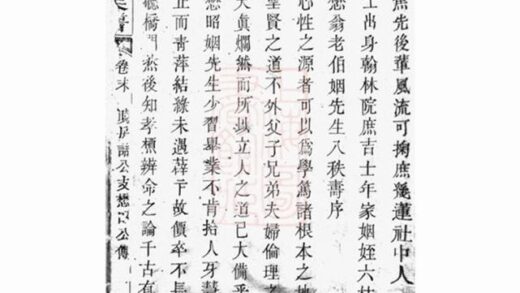 無先後輩風流可掬庶幾蓮社中人
出身翰林院庶吉士年家姻姪六
懋翁老伯姻先生八秩壽序
心性之源者可以為學篤諸根本之地
聖賢之道不外父子兄弟夫婦倫理之
大眞爛然而所以立人之道已大備
懋昭姻先生少習舉業不肯拾人牙慧
止而青萍結綠未遇薛卞故價卒不長
然後知孝標辨命之論千古有
卷末
公支懋公傳